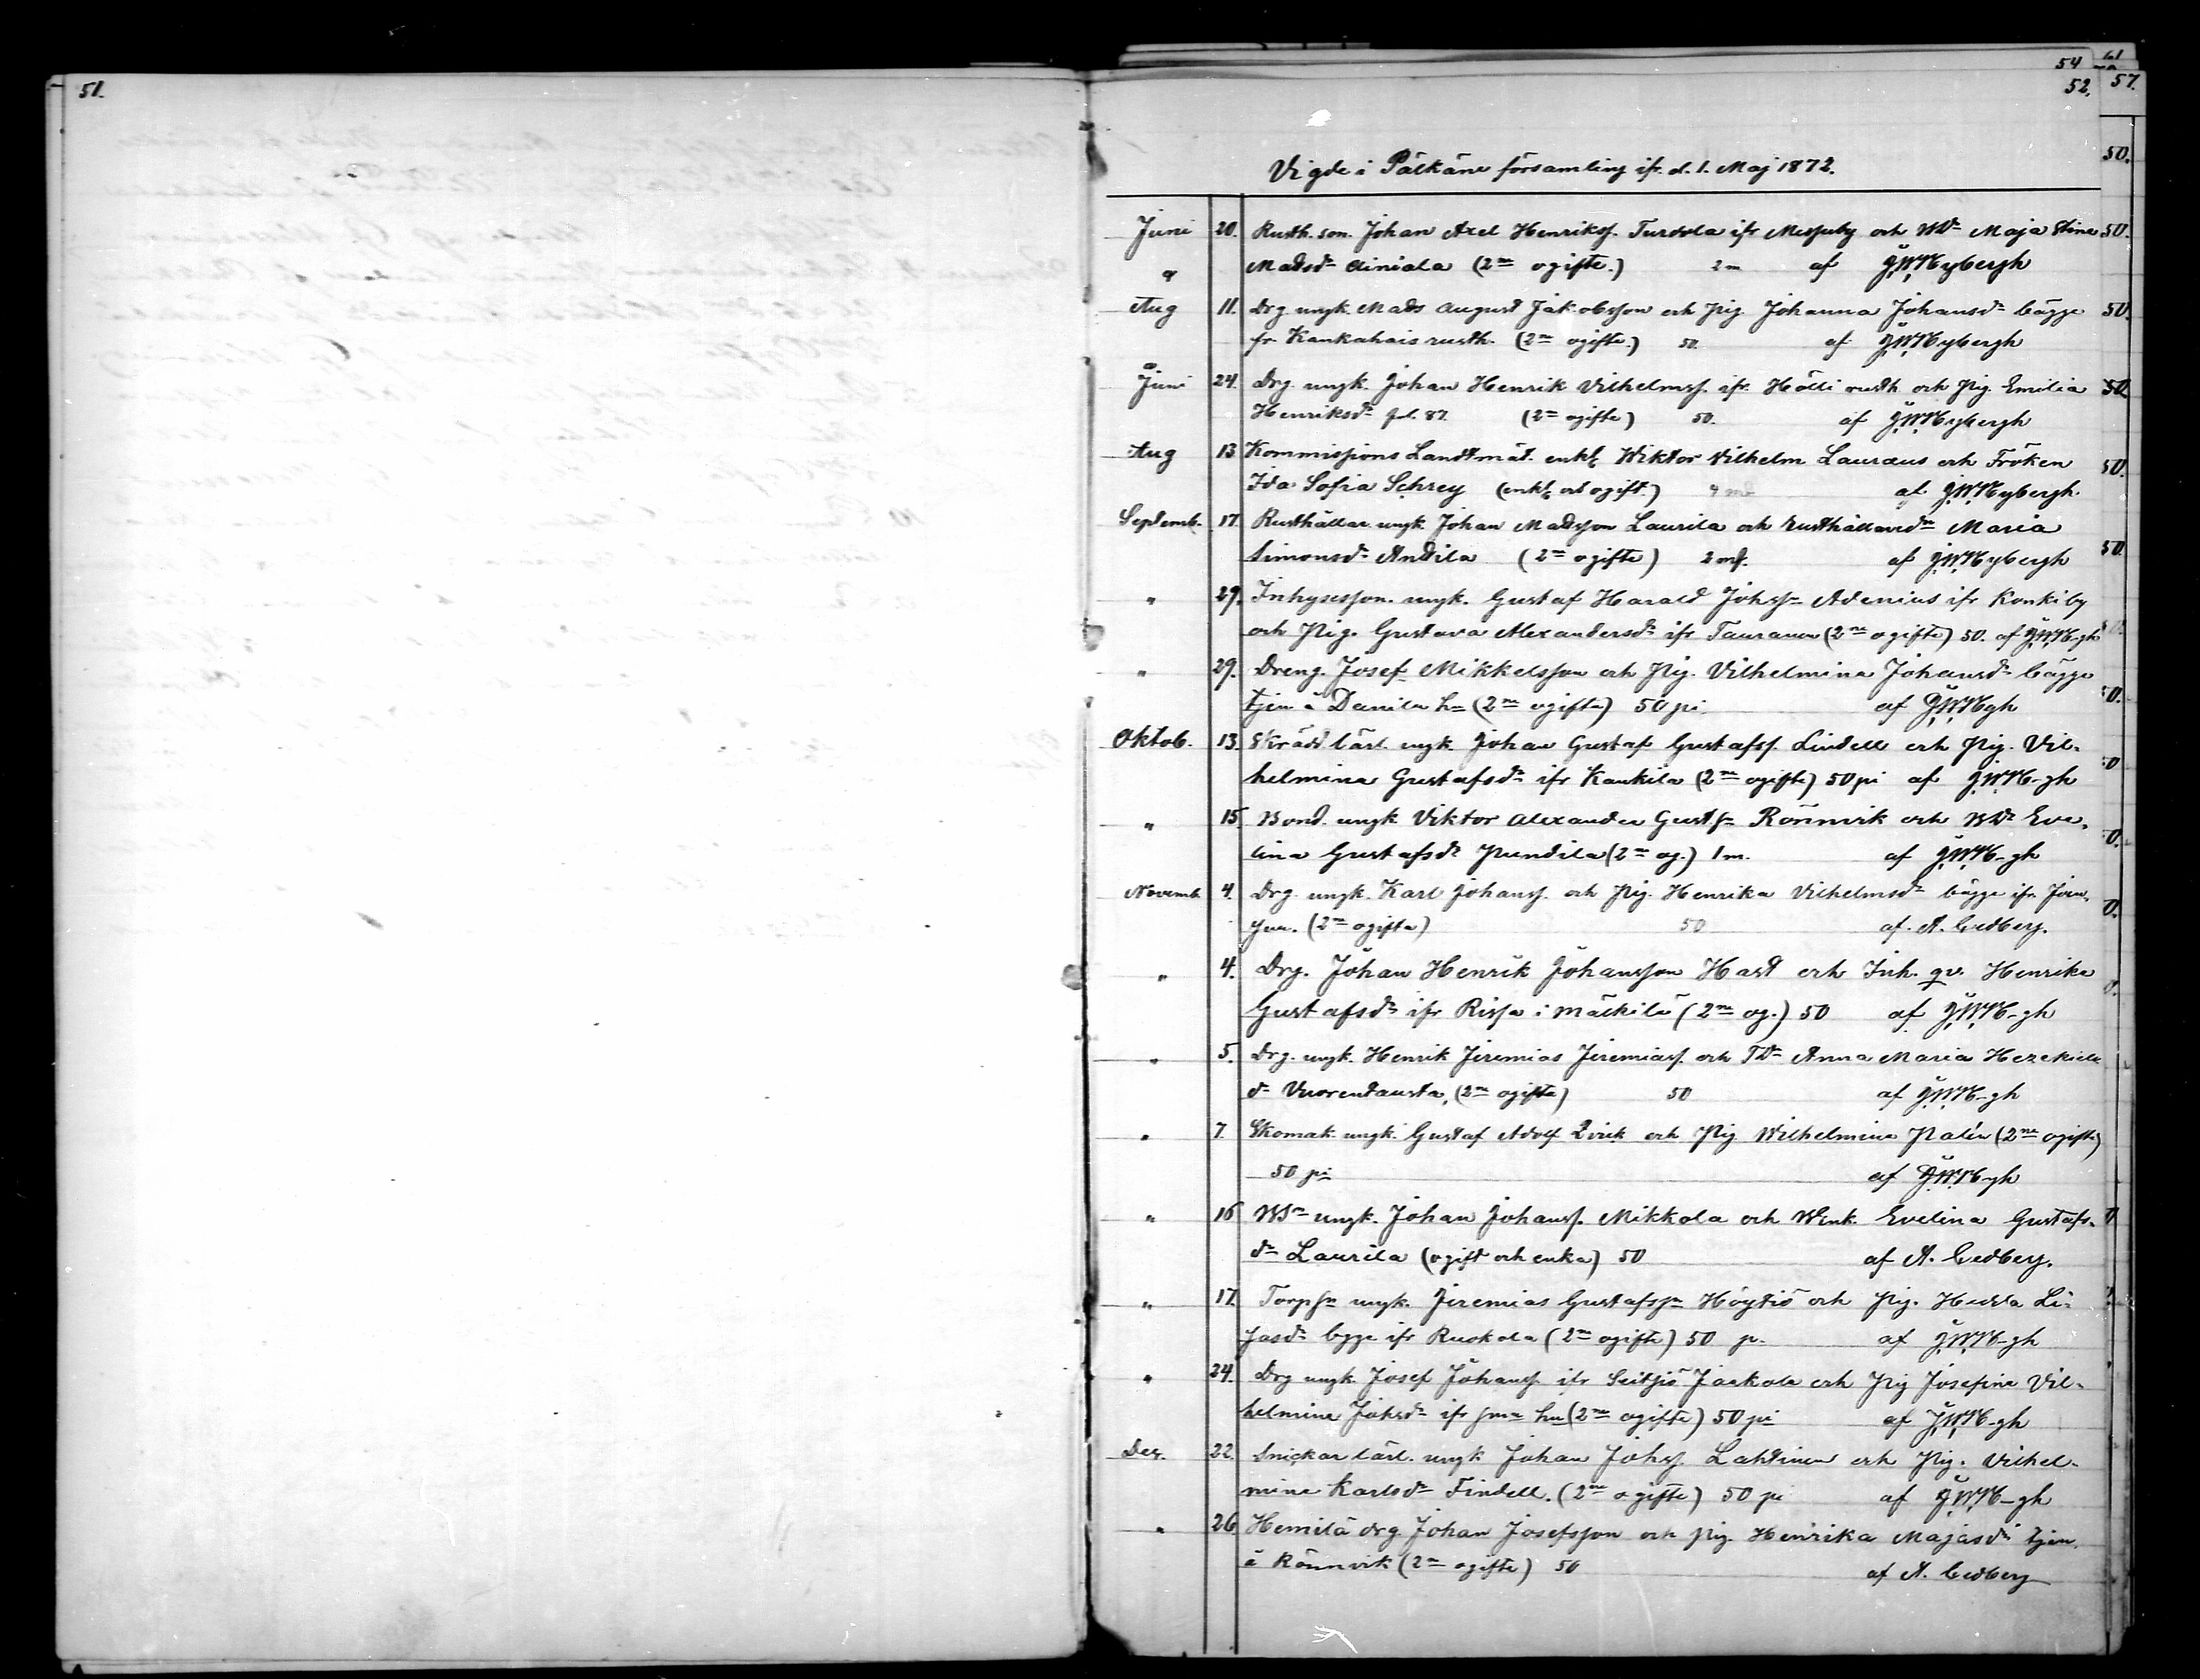 51.
54 61
52. 57.
Vigde i Pälkäne församling ifr. d. 1. Maj 1872.
50.
Juni 20. Rusth. son. Johan Axel Henrikss. Turdola ifr Messuby och BDr Maja Stina 50.
Madsdr Ainiala (2ne ogifte.) 2 m af J.W.Nybergh
Aug 11. Drg. ungk. Mads August Jakobsson och pig. Johanna Johansdr bägge 50.
fr. Kankahais rusth. (2ne ogifte.) 50. af J.W.Nybergh
Juni 24. Drg. ungk. Johan Henrik Vilhelmss. ifr. Hölli rusth. och pig. Emilia 50
Henriksdr (2ne ogifte) 50. af J.W.Nybergh
Aug 13 Kommissions Landtmät. enkl. Wiktor Vilhelm Lauraeus och Fröken 50.
Ida Sofia Schrey (enkl. och ogift.) 4 mk af J.W.Nybergh.
Septemb. 17. Rusthållar ungk. Johan Madsson Laurila och rusthållaredr Maria
Simonsdr Andila (2ne ogifte) 2 mk. af J.W.Nybergh 50.
" 29. Inhysesson. ungk. Gustaf Harald Johssn Adenius ifr Konkiby
och Pig. Gustava Alexandersdr ifr Tauranen (2ne ogifte) 50. af J.W.N-gh
" 29. Dreng. Josef Mikkelsson och Pig. Vilhelmina Johansdr bägge
tjen. å Danila hn (2ne ogifte) 50 pi. af J.W.Ngh 0.
Oktob. 13. Skrädd. lärl. ungk. Johan Gustaf Gustafss. Lindell och Pig. Vil-
helmina Gustafsdr ifr Kaukila (2ne ogifte) 50 pi af J.W.N-gh 0
" 15. Bond. ungk. Viktor Alexander Gustfsn Rönnvik och BDr Eve-
lina Gustafsdr Pundila (2ne og.) 1 m. af J.W.N-gh 0.
Novemb. 4. Drg. ungk. Karl Johanss. och Pig. Henrika Vilhelmsdr bägge ifr.
(2ne ogifta) 50 af. A. Cedberg. 0.
" 4. Drg. Johan Henrik Johansson Hast och Inh. qv. Henrika
Gustafsdr ifr Rissa i Mälkilä (2ne og.) 50 af J.W.N-gh
" 5. Drg. ungk. Henrik Jeremias Jeremiass. och TDr Anna Maria Hezekiels
dr Vuorentausta, (2ne ogifte) 50 af J.W.N-gh
" 7. Skomak. ungk. Gustaf Adolf Qvick och Pig Wilhelmina Palin (2ne ogifte)
50 pi af J.W.N-gh
" 16 BSn ungk. Johan Johanss. Mikkola och Wenk. Evelina Gustafs-
dr Laurila (ogift och enka) 50 af A. Cedberg.
" 17. Torpsn ungk. Jeremias Gustafssn Höytiö och Pig. Hedda Li-
sasdr begge ifr Ruokola (2ne ogifte) 50 p. af J.W.N-gh
" 24. Drg ungk. Josef Johanss. ifr Seitjis Jaakola och Pig Josefina Vil-
helmina Johsdr ifr sma hn (2ne ogifte) 50 pi af J.W.N-gh
Dec. 22. Snickar lärl. ungk Johan Johss. Lahtinen och Pig. Vilhel-
mina Karlsdr Findell. (2ne ogifte) 50 pi af J.W.N-gh
" 26 Hemilä drg. Johan Josefsson och pig. Henrika Majasdr tjen.
å Rönnvik (2ne ogifte) 50 af A. Cedberg